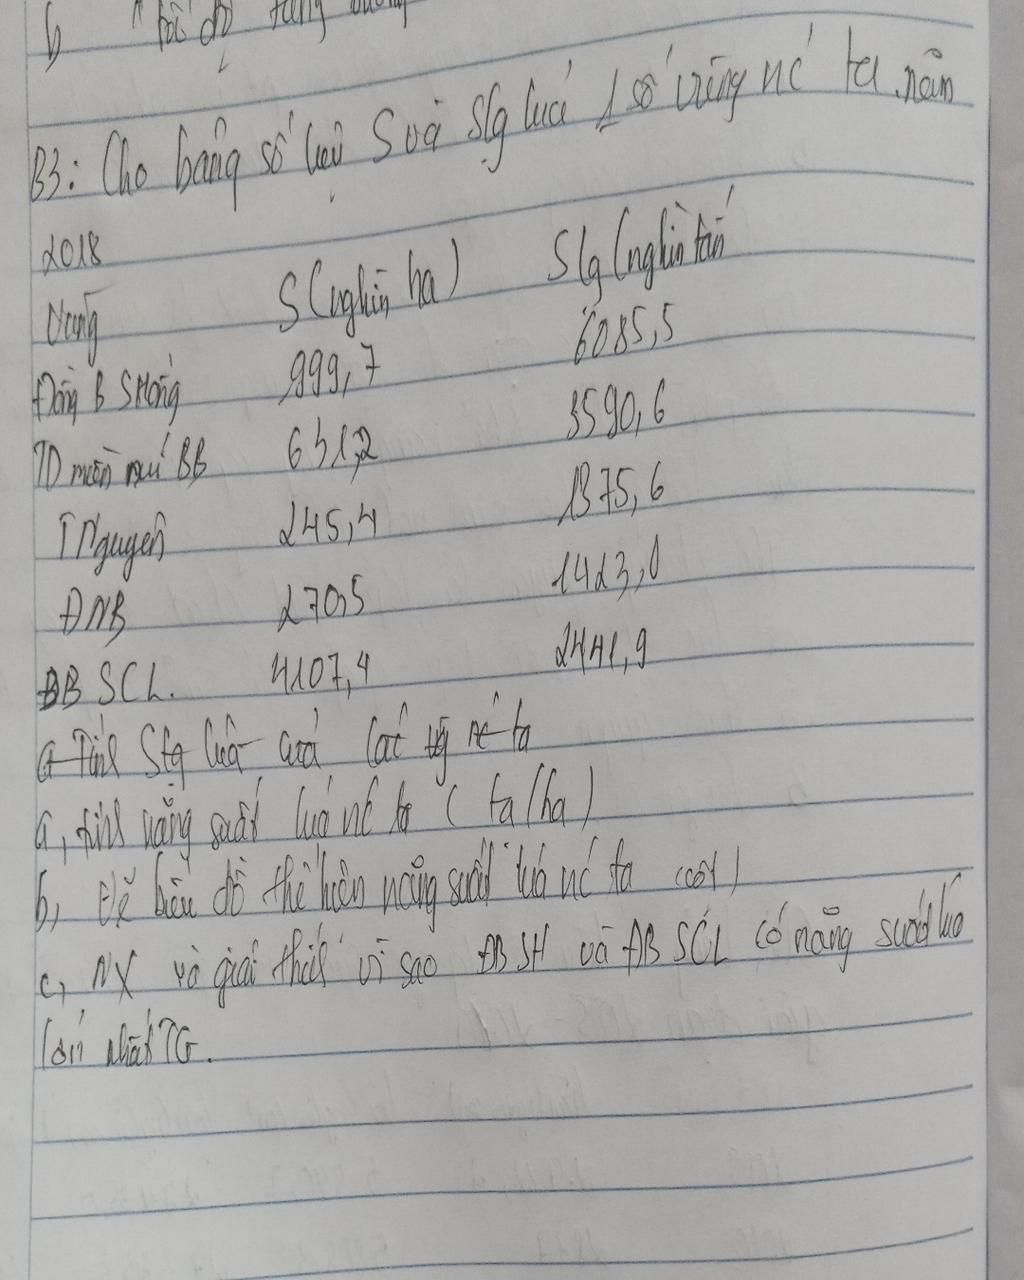 b) Tốc độ tăng trưởng
B3: Cho bảng số liệu S và Slg lúa 1 số vùng nc ta năm
2018
Vùng S(nghìn ha) Slg (nghìn tấn
Đồng B SHồng 999,7 6085,5
TD miền núi BB 631,2 3590,6
T Nguyên 245,4 1375,6
ĐNB 270,5 1423,0
ĐB SCL. 4107,4 2441,9
a Tính Slg lúa của các vg nc ta
a, tính năng suất lúa nc ta ( tạ/ha)
b, vẽ biểu đồ thể hiện năng suất lúa nc ta (cột)
c, NX và giải thích vì sao ĐB SH và ĐB SCL có năng suất lúa
lớn nhất TG.